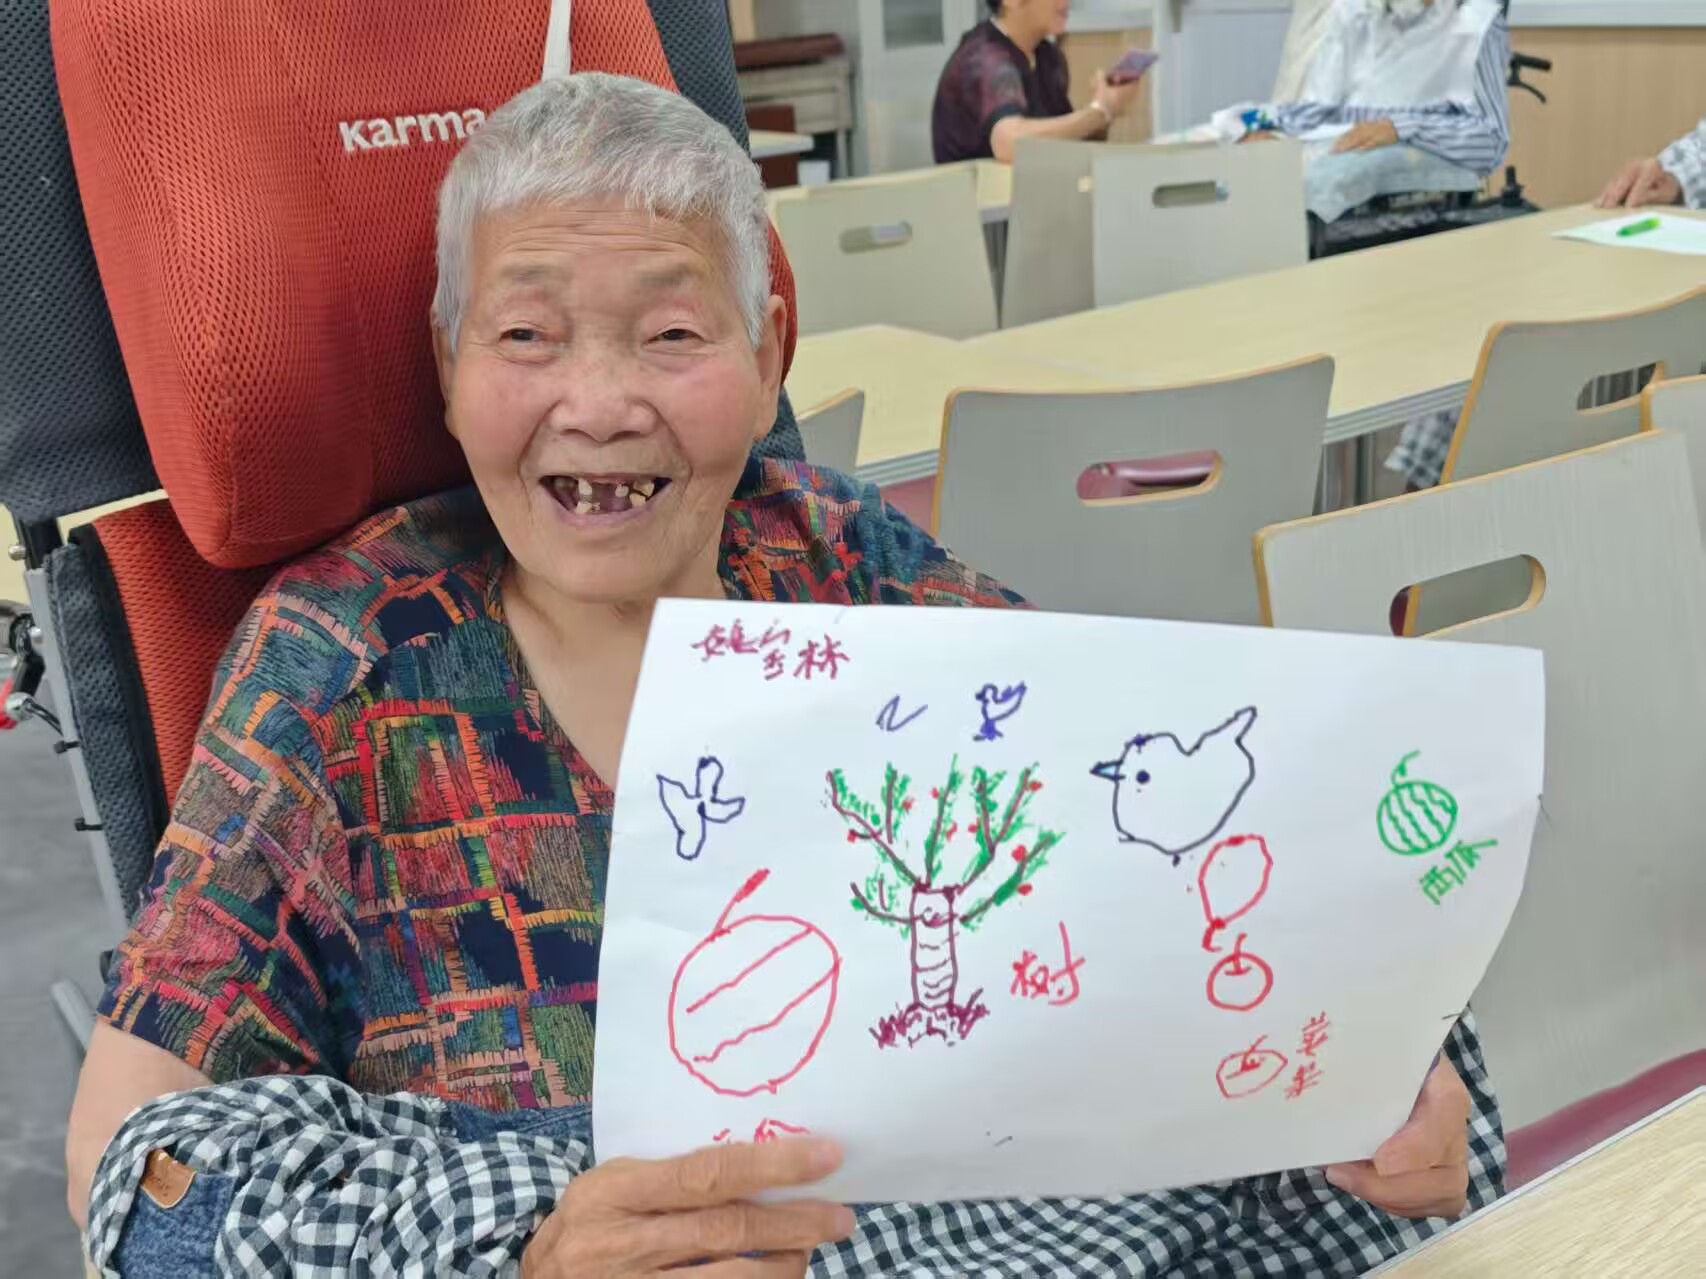 Karma
林
树
西瓜
苹果